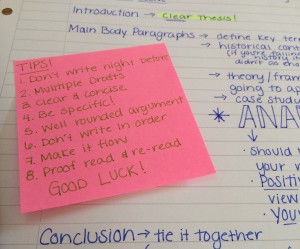 Introduction → clear thesis!
Main Body Paragraphs → define key ter
→ historical cont
(if you're talkin
history it
didn't do eno
→ theory/fram
going to ap
→ case stud
TIPS!
1. Don't write night before
2. Multiple Drafts
3. Clear & concise
4. Be specific!
5. Well rounded argument
6. Don't write in order
7. Make it flow
8. Proof read & re-read
GOOD LUCK!
* ANA
• Should
your v
• Positi
view
• You
Conclusion → tie it together